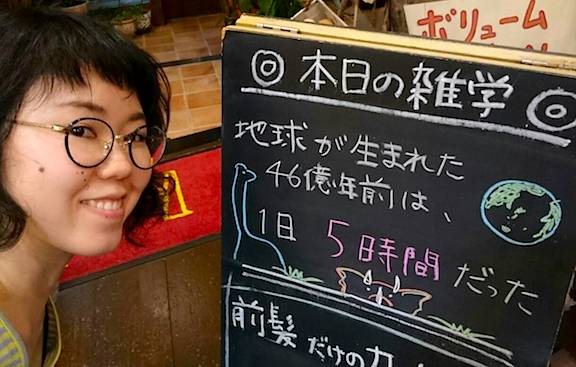 ボリューム
◎本日の雑学◎
地球が生まれた
46億年前は、
1日 5時間だった
前髪だけのカ